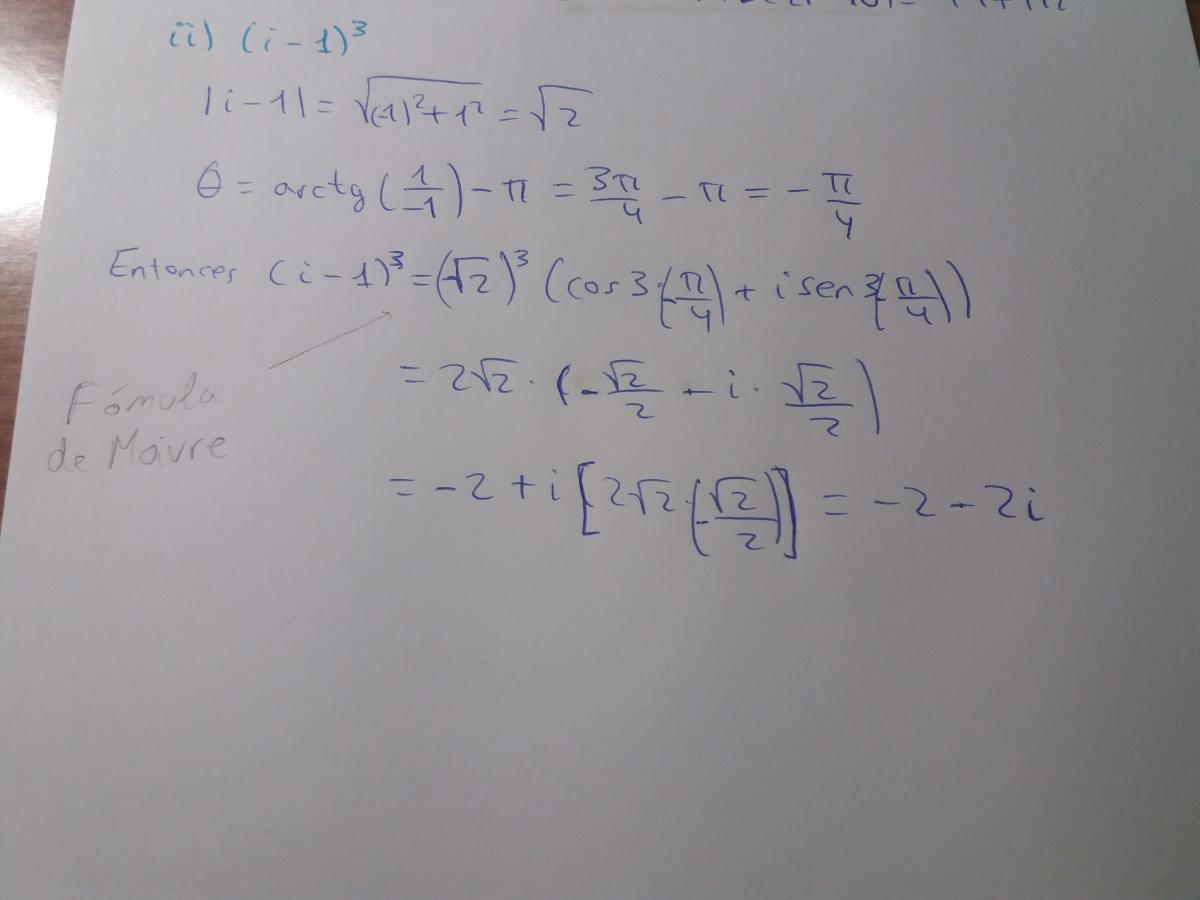 ii) (i - 1)³
|i - 1| = √((-1)² + 1²) = √2
θ = arctg(1/-1) - π = 3π/4 - π = - π/4
Entonces (i - 1)³ = (√2)³ (cos 3·(-π/4) + i sen 3(-π/4))
= 2√2 · (-√2/2 - i · √2/2)
Fómula
de Moivre
= -2 + i [2√2 · (-√2/2)] = -2 - 2i